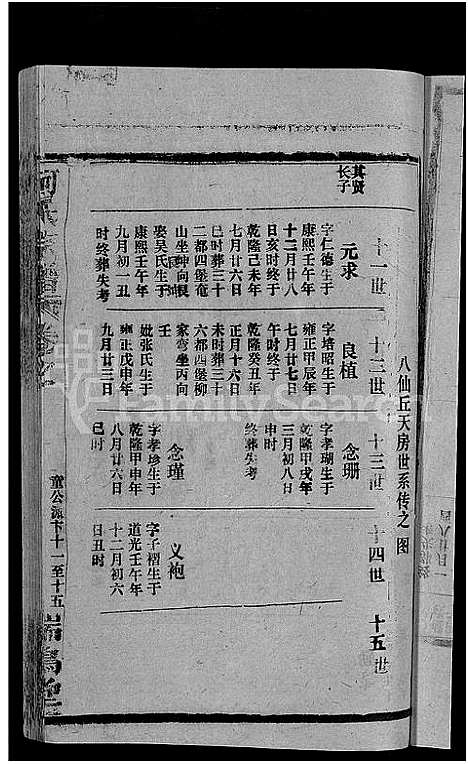 八仙丘天房世系传之图
十一世
十二世
十三世
十四世
十五世
其贤
长子
元求
字仁德生于
康熙壬午年
十二月廿八
日亥时终于
乾隆己未年
七月廿六日
巳时葬三十
二都四堡奄
山坐坤向艮
娶吴氏生于
康熙壬午年
九月初一丑
时终葬失考
良植
字培昭生于
雍正甲辰年
七月廿七日
午时终于
乾隆癸丑年
正月十六日
未时葬三十
六都四堡柳
家弯坐丙向
壬
妣张氏生于
雍正戊申年
九月廿三日
念珊
字孝瑚生于
乾隆甲戌年
三月初八日
申时
终葬失考
念瑾
字孝珍生于
乾隆甲申年
八月廿六日
巳时
义袍
字千褶生于
道光壬午年
十二月初六
日丑时
童公派下十一至十五
FamilySearch